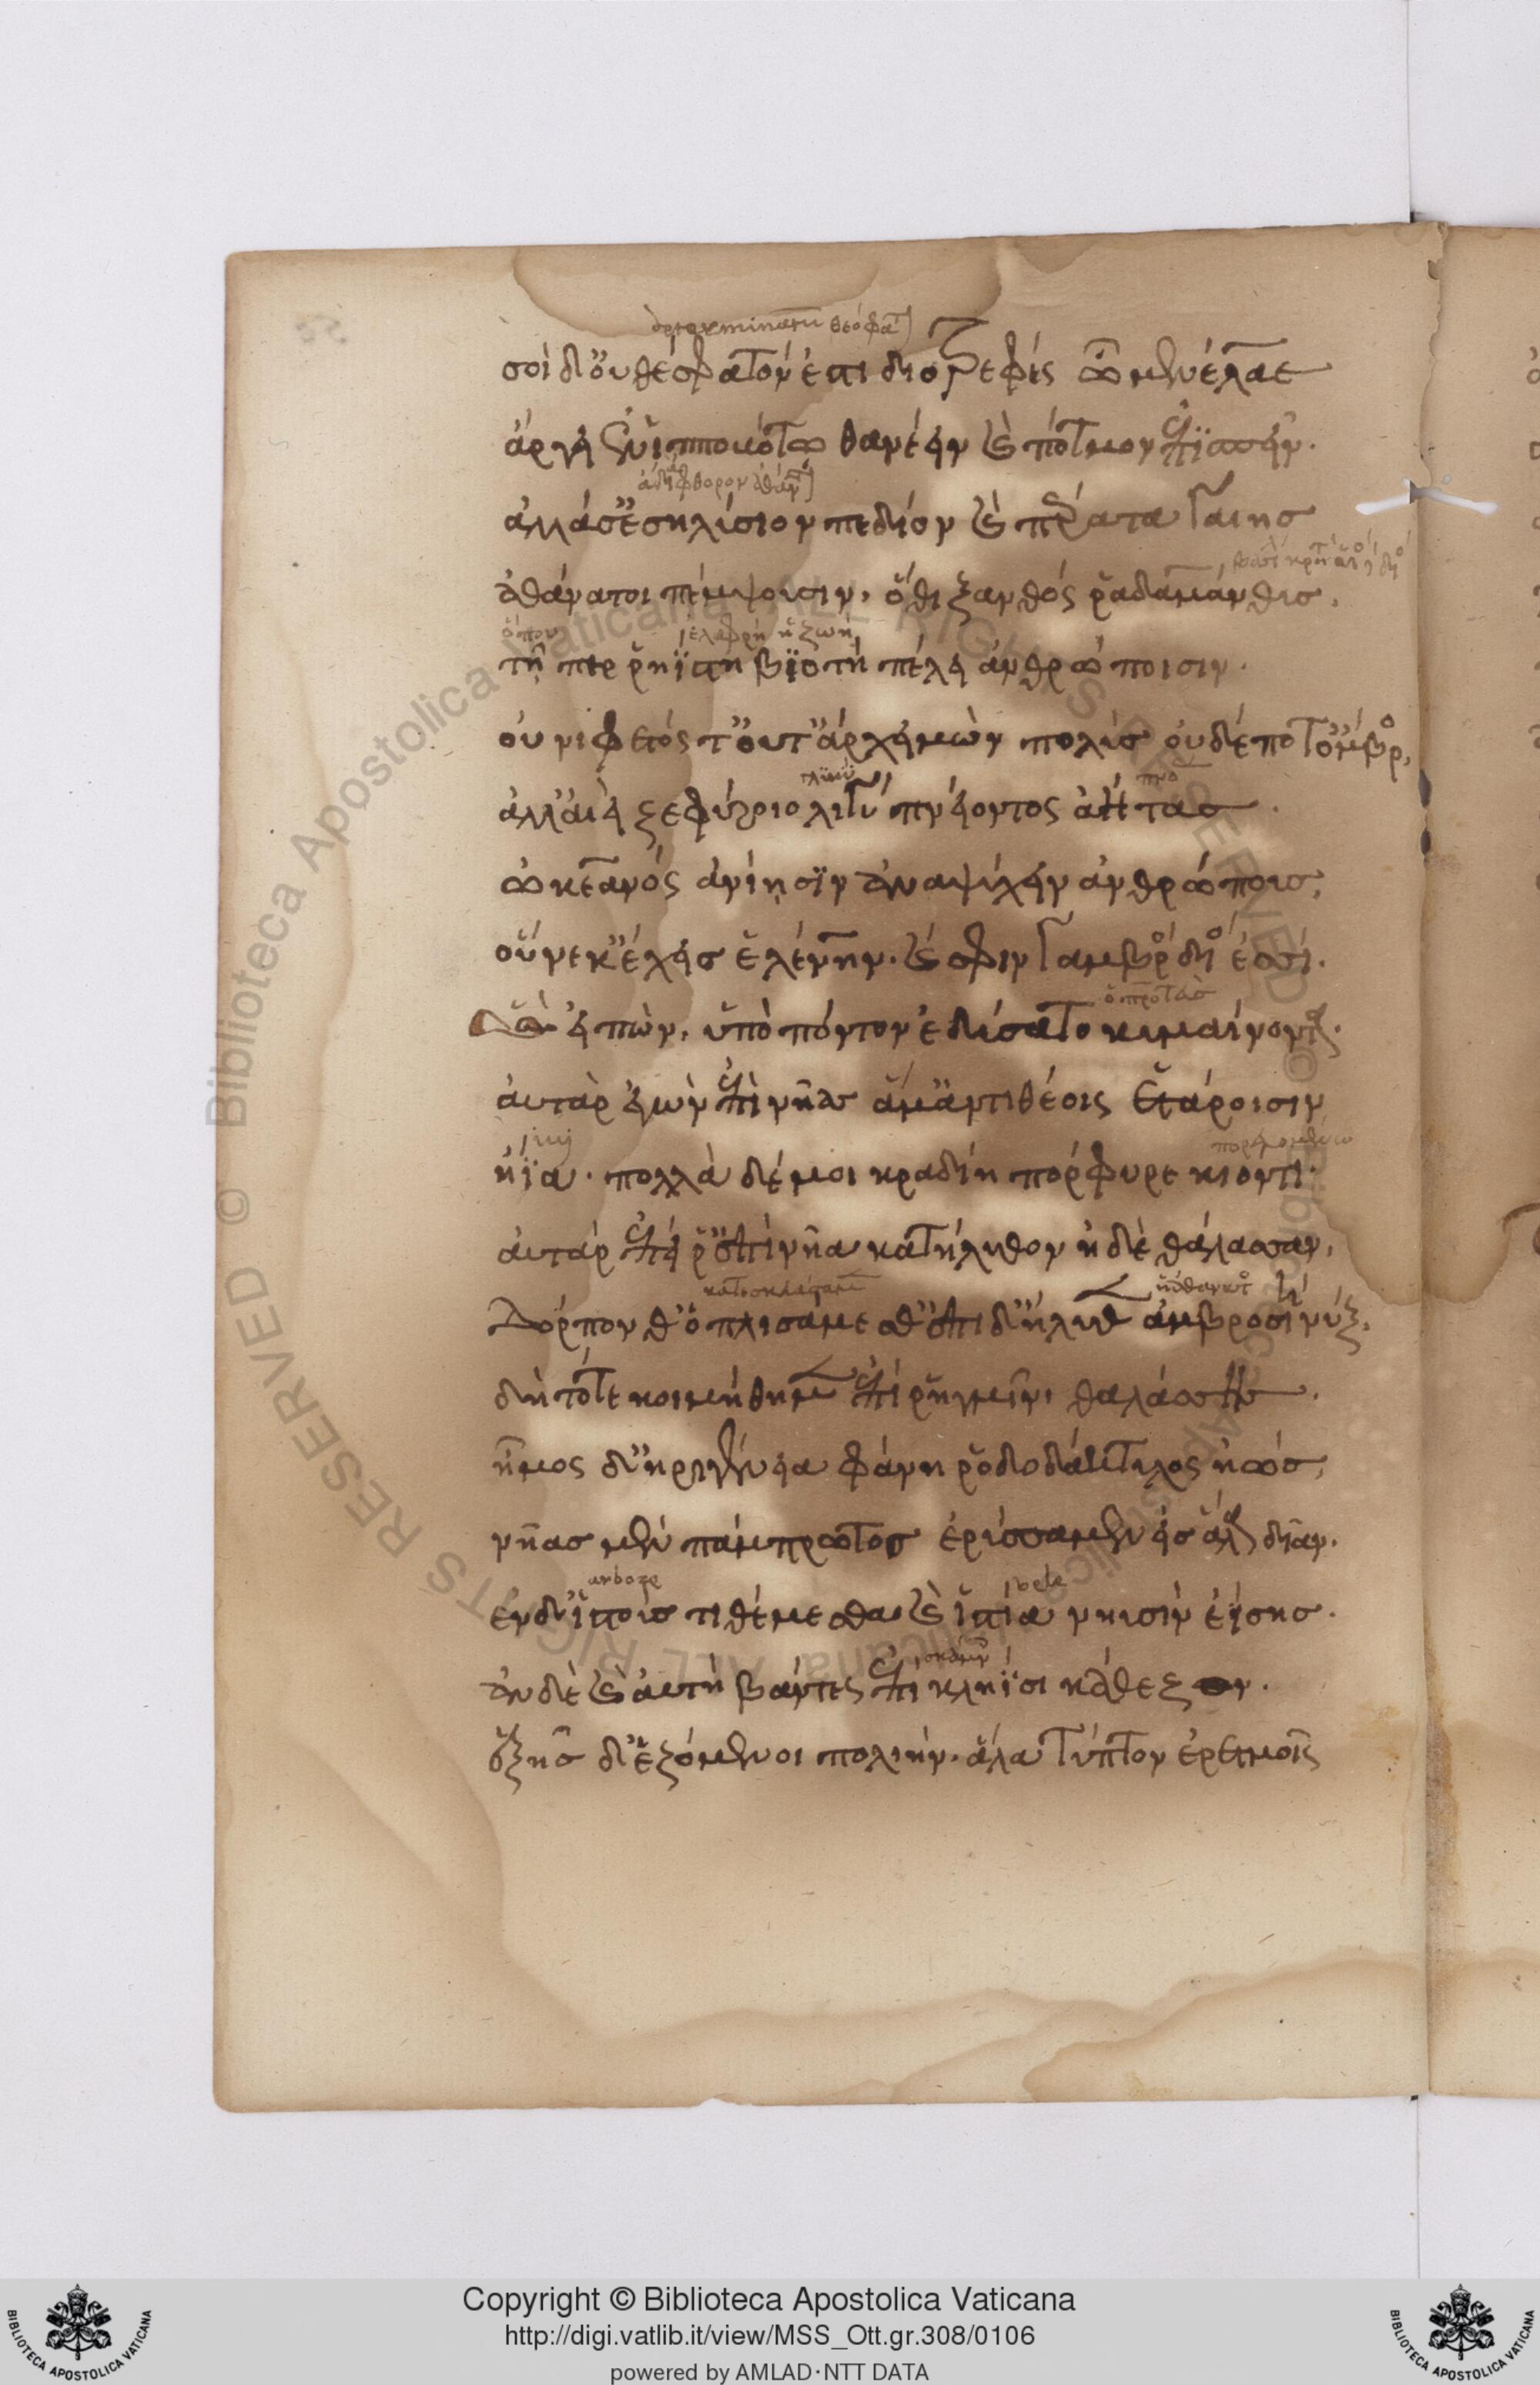 determinatum θεόφατ
σοὶ δ' οὐ θέσφατόν ἐστι διοτρεφὲς ὦ μενέλαε
ἄργει ἐν ἱπποβότω θανέειν καὶ πότμον ἐπισπεῖν.
ἀλλά σ' ἐς ἠλύσιον πεδίον καὶ πείρατα γαίης
ἀθάνατοι πέμψουσιν, ὅθι ξανθός ῥαδάμανθυς.
ὅπου ἐλαφρὴ ἡ ζωή
τῆ περ ῥηΐστη βϊοτὴ πέλει ἀνθρώποισιν.
οὐ νιφετός τ' οὔτ' ἄρ χειμὼν πολὺς οὐδέποτ' ὄμβρος,
ἀλλ' αἰεὶ ζεφύροιο λιγὺ πνείοντος ἀήτας.
ὠκεανός ἀνίησϊν ἀναψύχειν ἀνθρώπους,
οὕνεκ' ἔχεις ἑλένην. καί σφιν γαμβρός διός ἐσσί.
ὣς εἰπὼν, ὑπὸ πόντον ἐδύσατο κυμαίνοντα.
αὐτὰρ ἐγὼν ἐπὶ νῆας ἅμ' ἀντιθέοις ἑτάροισιν
ἤϊα. πολλὰ δέ μοι κραδίη πόρφυρε κιόντι.
αὐτάρ ἐπεί ῥ' ἐπὶ νῆα κατήλυθον ἠδὲ θάλασσαν,
δόρπον θ' ὁπλισάμεσθ' ἐπί δ' ἤλυθεν ἀμβροσίη νύξ,
δὴ τότε κοιμήθημεν ἐπὶ ῥηγμῖνι θαλάσσης.
ἦμος δ' ἠριγένεια φάνη ῥοδοδάκτυλος ἠώς,
νῆας μὲν πάμπρωτος ἐρύσσαμεν εἰς ἅλα δῖαν.
arbore vele
ἐν δ' ἱστοὺς τιθέμεσθα καὶ ἱστία νηυσὶν ἐΐσης.
ἂν δὲ καὶ αὐτοὶ βάντες ἐπὶ κληῖσι κάθεζον.
ἑξῆς δ' ἑζόμενοι πολιὴν ἅλα τύπτον ἐρετμοῖς
Copyright © Biblioteca Apostolica Vaticana
http://digi.vatlib.it/view/MSS_Ott.gr.308/0106
powered by AMLAD·NTT DATA